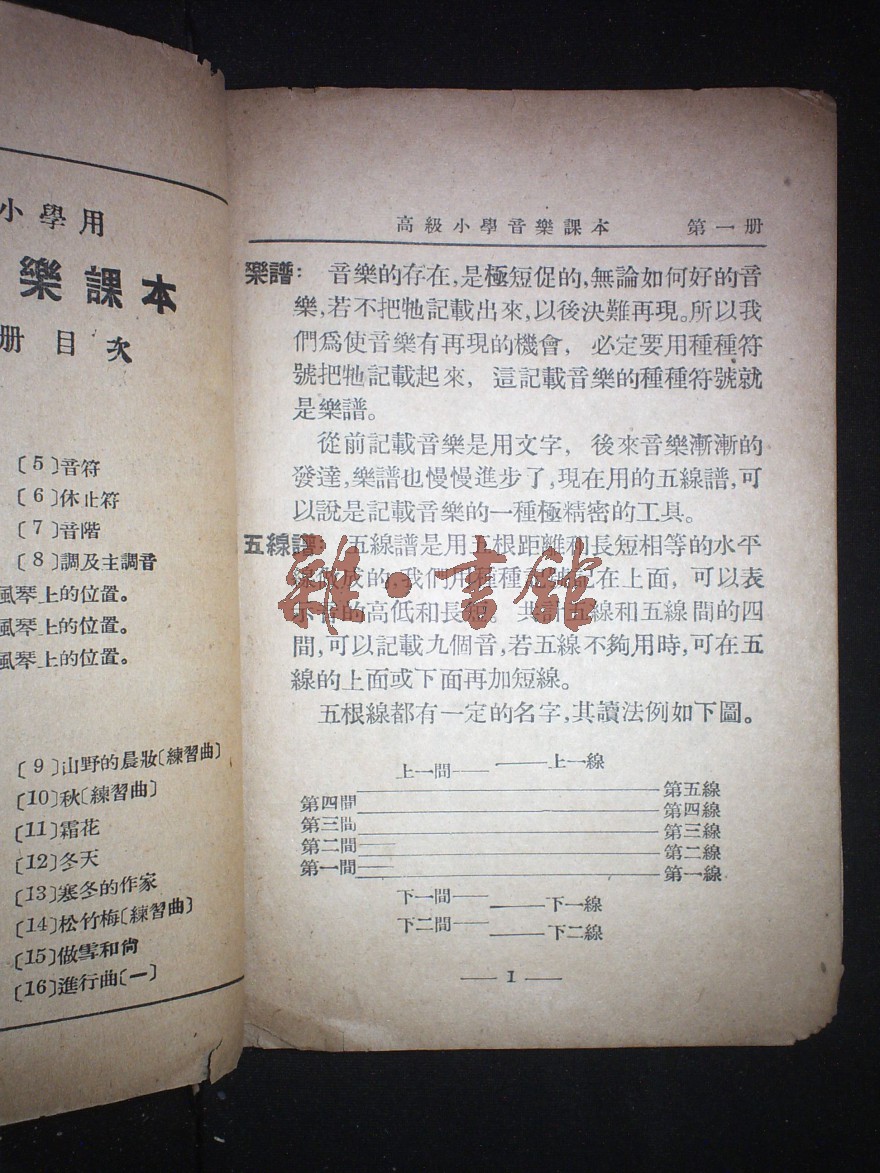 小學用
樂課本
册目次
〔5〕音符
〔6〕休止符
〔7〕音階
〔8〕調及主調音
風琴上的位置。
風琴上的位置。
風琴上的位置。
〔9〕山野的晨妝〔練習曲〕
〔10〕秋〔練習曲〕
〔11〕霜花
〔12〕冬天
〔13〕寒冬的作家
〔14〕松竹梅〔練習曲〕
〔15〕做雪和尙
〔16〕進行曲〔一〕
高級小學音樂課本 第一册
樂譜： 音樂的存在，是極短促的，無論如何好的音
樂，若不把牠記載出來，以後決難再現。所以我
們爲使音樂有再現的機會， 必定要用種種符
號把牠記載起來， 這記載音樂的種種符號就
是樂譜。
從前記載音樂是用文字， 後來音樂漸漸的
發達，樂譜也慢慢進步了，現在用的五線譜，可
以說是記載音樂的一種極精密的工具。
五線譜： 五線譜是用五根距離和長短相等的水平
線做成的，我們用種種記號記在上面， 可以表
示音的高低和長短。 共計五線和五線間的四
間，可以記載九個音，若五線不夠用時，可在五
線的上面或下面再加短線。
五根線都有一定的名字，其讀法例如下圖。
上一間 上一線
第四間 第五線
第三間 第四線
第二間 第三線
第一間 第二線
第一線
下一間 下一線
下二間 下二線
— 1 —
雜·書館